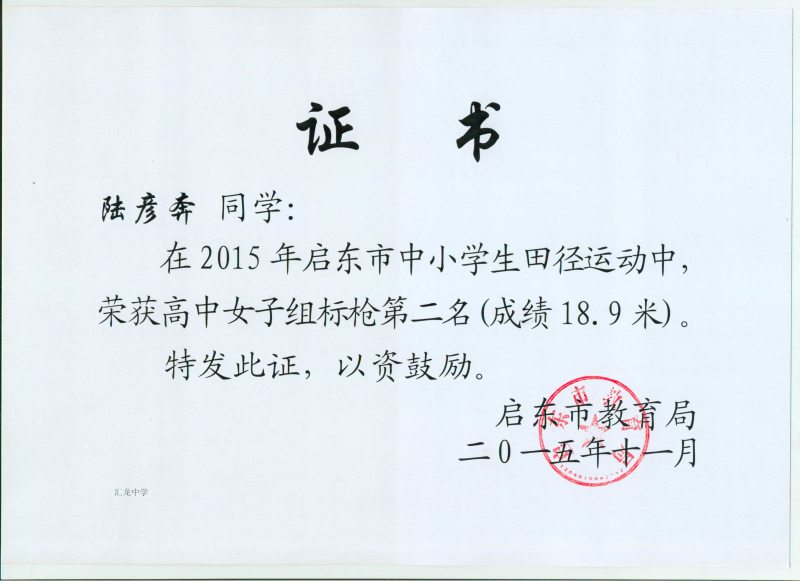 证 书
陆彦奔 同学：
在2015年启东市中小学生田径运动中，
荣获高中女子组标枪第二名(成绩18.9米)。
特发此证，以资鼓励。
启东市教育局
二0一五年十一月
汇龙中学